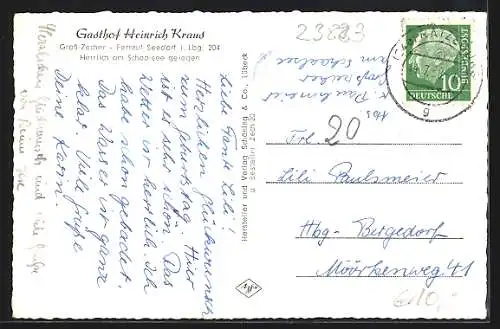 Gasthof Heinrich Kraus
Groß-Zecher - Fernruf Seedorf i. Lbg. 204
Herrlich am Schaalsee gelegen
23883
Liebe Tante Lili!
Herzlichen Glückwunsch
zum Geburtstag. Hier
ist es sehr schön. Das
Wetter ist herrlich. Ich
habe schon gebadet.
Das Wasser ist ganz
klar. Viele Grüße
Deine Karin
Herzlichen Glückwunsch und viele Grüße
Hersteller und Verlag Schöning & Co., Lübeck
Abs
Paulsmeier
am Schaalsee
20
Frl.
Lili Paulsmeier
Hbg-Bergedorf
Möörkenweg 41
10
DEUTSCHE
BUNDESPOST
g
€10,-